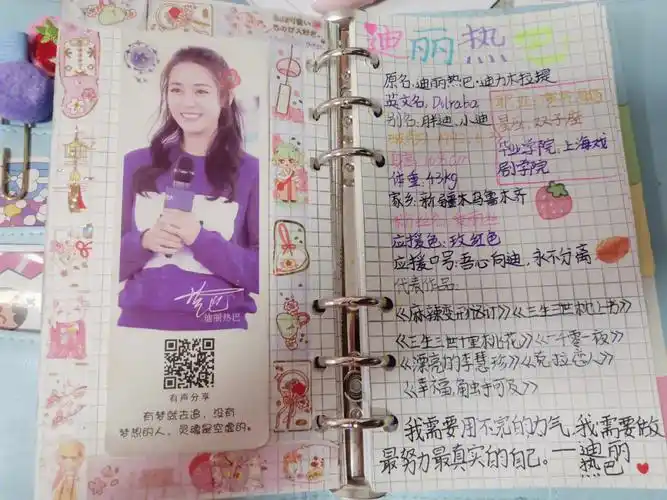 迪丽热巴
有声分享
有梦就去追，没有
梦想的人，灵魂是空虚的。
迪丽热巴
原名:迪丽热巴·迪力木拉提
英文名:Dilraba
别名:胖迪、小迪
体重:43kg
家乡:新疆乌鲁木齐
星座:双子座
毕业学院:上海戏
剧学院
应援色:玫红色
应援口号:吾心向迪,永不分离
代表作品:
《麻辣变形计》《三生三世枕上书》
《三生三世十里桃花》《一千零一夜》
《漂亮的李慧珍》《克拉恋人》
《幸福,触手可及》
我需要用不完的力气,我需要做
最努力最真实的自己。——迪丽
热巴